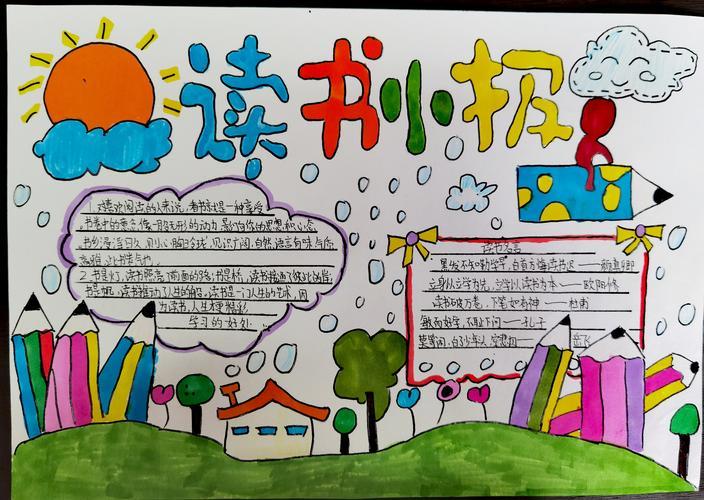 读书小报
1.对喜欢阅读的人来说,看书就是一种享受
书卷中的意念像一股无形的动力,影响你的思想和心态
书乡浸淫日久
2.书是灯,读书照亮了前面的路;书是桥,读书接通了彼此的岸;
书是帆,读书推动了人生的船。读书是一门人生的艺术,因
为读书,人生才更精彩
学习的好处
读书名言
黑发不知勤学早,白首方悔读书迟——颜真卿
立身以立学为先,立学以读书为本——欧阳修
读书破万卷,下笔如有神——杜甫
敏而好学,不耻下问——孔子
莫等闲,白了少年头,空悲切 岳飞